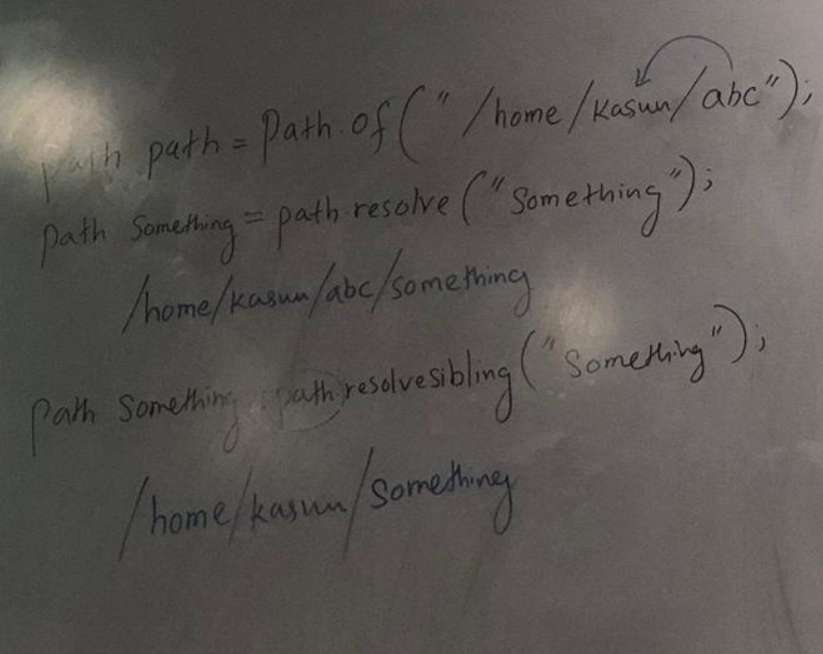 Path path = Path.of("/home/kasun/abc");
Path Something = path.resolve("Something");
/home/kasun/abc/something
Path Something = path.resolvesibling("Something");
/home/kasun/Something